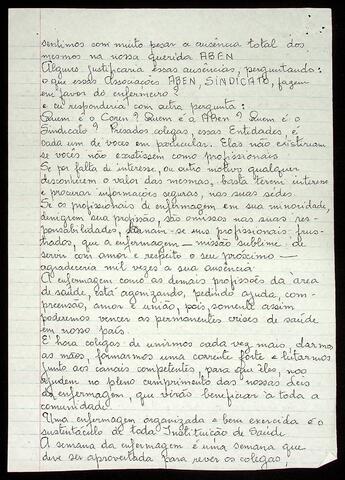 sentimos com muito pesar a ausência total dos
mesmos na nossa querida ABEN
Alguns justificaria essas ausências, perguntando:
o que essas Associações ABEN, SINDICATO, fazem
em favor do enfermeiro?
e eu responderia com outra pergunta:
Quem é o Coren? Quem é a ABen? Quem é o
Sindicato? Prezados colegas, essas Entidades, é
cada um de voces em particular. Elas não existiriam
se vocês não existissem como profissionais
Se por falta de interesse, ou outro motivo qualquer
desconhecem o valor das mesmas, basta terem interesse
e procurar informações seguras, nas suas sedes.
Se os profissionais de enfermagem em sua minoridade,
denigrem sua profissão, são omissos nas suas res-
ponsabilidades, tornam-se uns profissionais frus-
trados, que a enfermagem - missão sublime de
servir com amor e respeito o seu próximo -
agradeceria mil vezes a sua ausência
A enfermagem como as demais profissões da área
de saúde, está agonizando, pedindo ajuda, com-
preensão, amor e união, pois, somente assim
poderemos vencer as permanentes crises de saúde
em nosso país.
É hora colegas de unirmos cada vez mais, darmos
as mãos, formarmos uma corrente forte e lutarmos
junto aos canais competentes, para que eles, nos
ajudem no pleno cumprimento das nossas
da enfermagem, que virão beneficiar a toda a
comunidade
Uma enfermagem organizada e bem exercida é o
sustentáculo de toda Instituição de Saúde
A semana da enfermagem é uma semana que
deve ser aproveitada para rever os colegas,